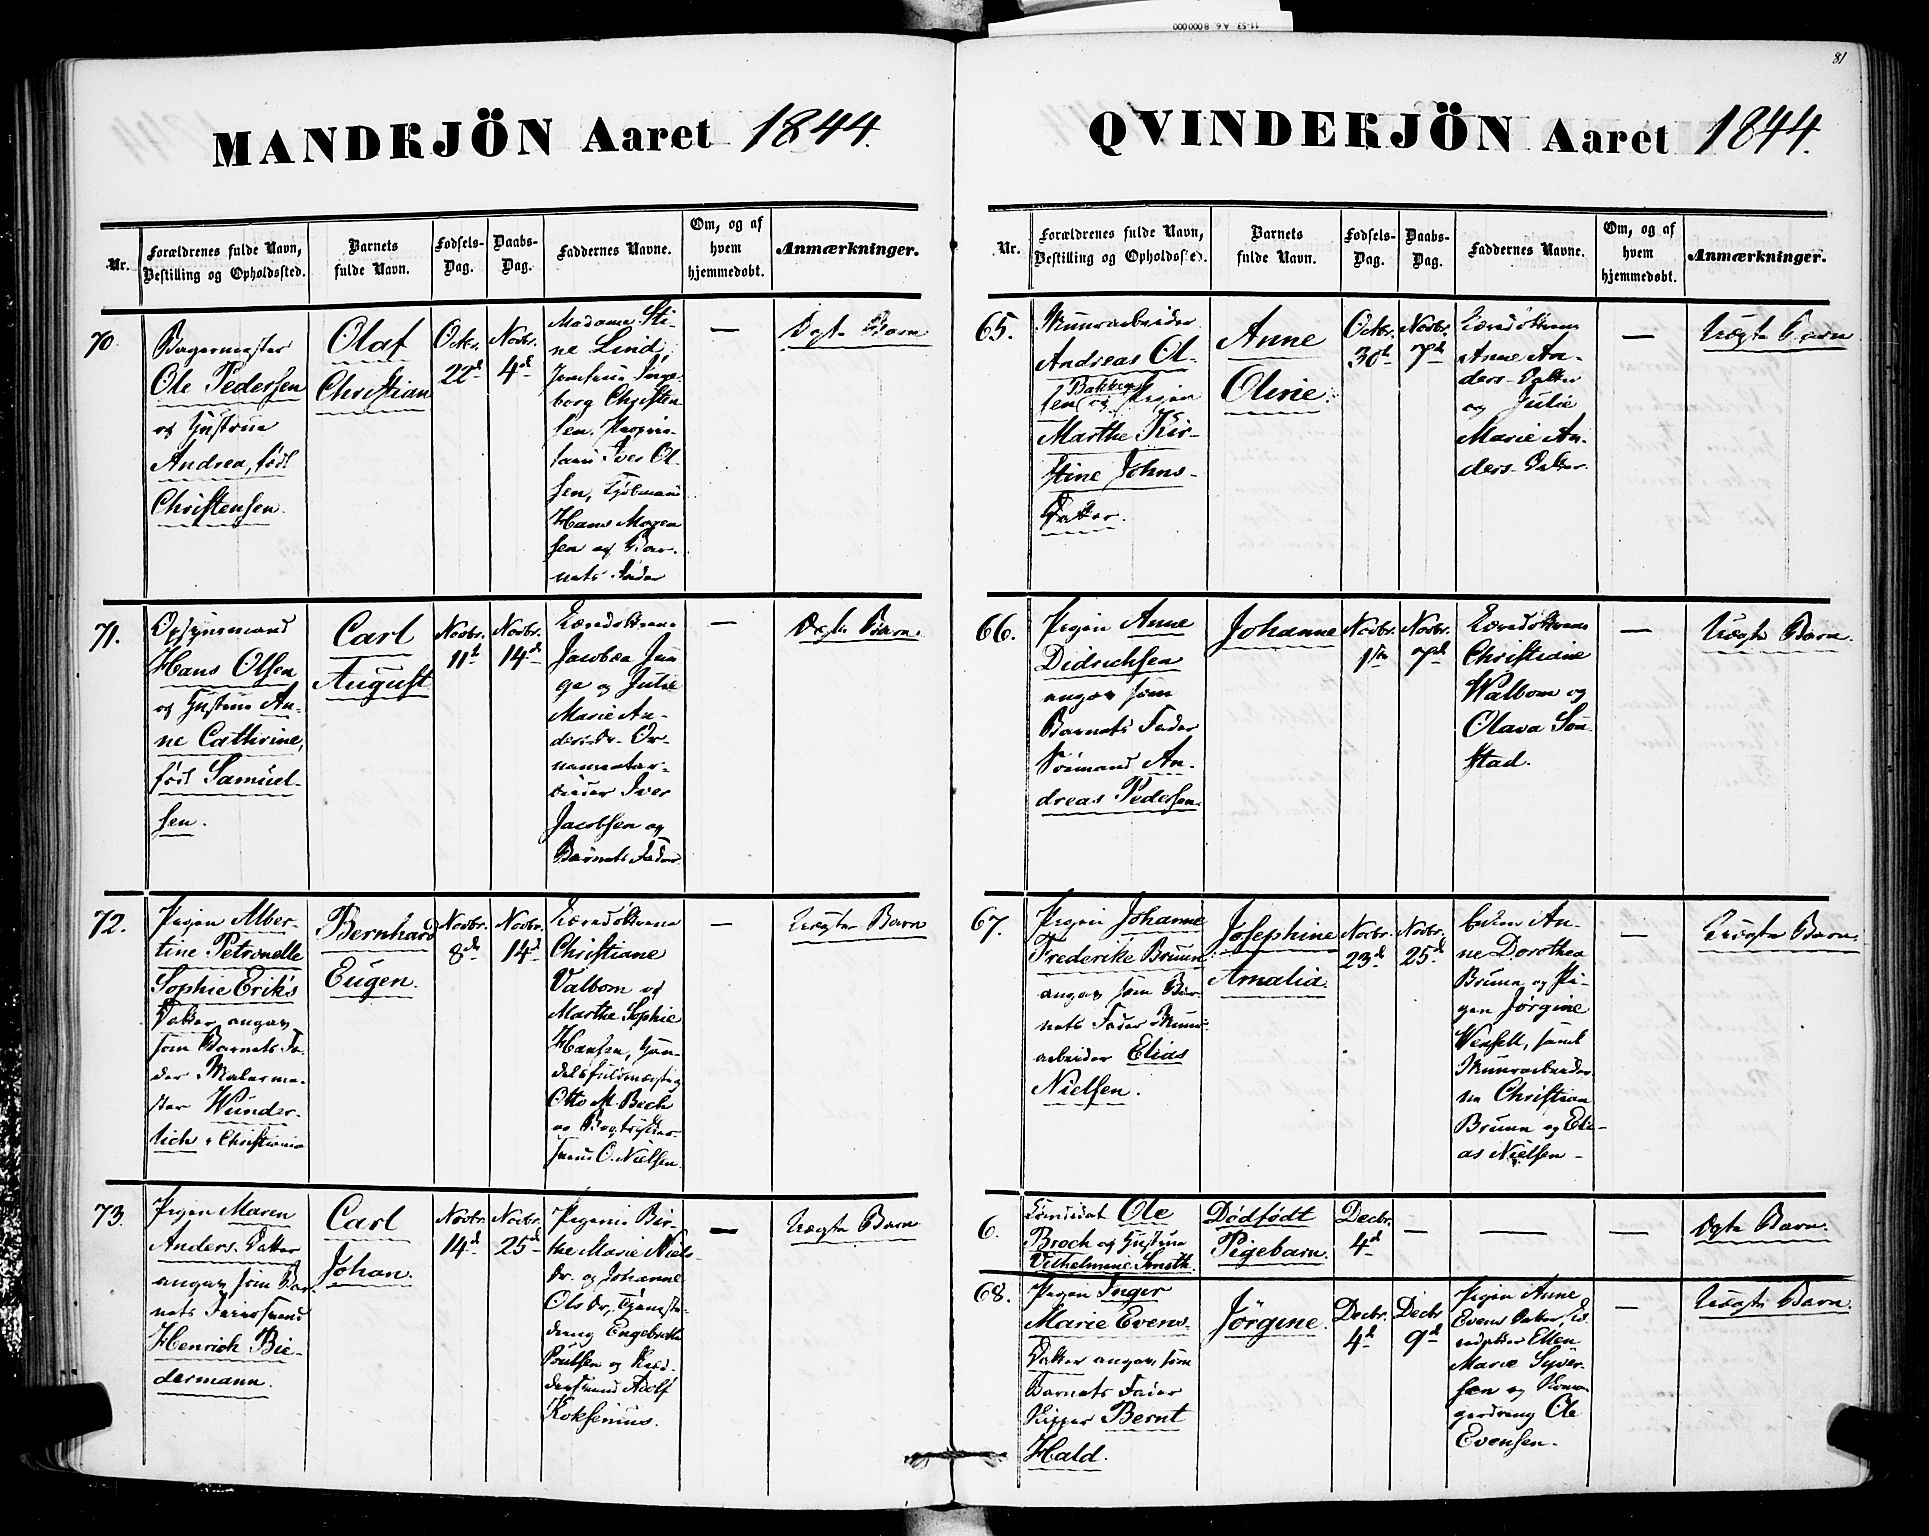 81
MANDKJÖN Aaret 1844.
Nr.
Forældrenes fulde Navn,
Bestilling og Opholdssted.
Barnets
fulde Navn.
Fødsels-
Dag.
Daabs-
Dag.
Faddernes Navne.
Om, og af
hvem
hjemmedøbt.
Anmærkninger.
70.
Bagermester
Ole Pedersen
og Hustrue
Andrea, født
Christensen.
Olaf
Christian
Octbr.
22d
Novbr.
4d
Madame Sti-
ne Lind,
Jomfrue Inge-
borg Christen-
sen.
Iver Ol-
sen, Kjøbmand
Hans Mogen
sen og Bar-
nets Fader
—
Ægte Barn
71.
Opsynsmand
Hans Olsen
og Hustrue An-
ne Cathrine,
født Samuel-
sen.
Carl
August
Novbr.
11t
Novbr.
14d
Jacobea Jun-
ge og Julie
Marie An-
dersdr. Or-
namentar-
beider Iver
Jacobsen og
Barnets Fader
—
Ægte Barn.
72.
Pigen Alber-
tine Petronelle
Sophie Eriks
Datter angav
som Barnets Fa-
der Malerme-
ster Wunder-
lich i Christiania
Bernhard
Eugen.
Novbr.
8d
Novbr.
14d
Christiane
Valbom og
Marthe Sophie
Hansen, Han-
delsfuldmægtig
Otto M. Bech
og Bogtrykker-
svend O. Nielsen.
—
Uægte Barn
73.
Pigen Maren
Anders Datter
angav som Bar-
nets Fader
Henrich Bie-
dermann.
Carl
Johan.
Novbr.
14d
Novbr.
25d
Pigerne Bir-
the Marie Niels
Dr. og Johanne
Ols Dr., Tjeneste-
dreng Engebreth
Poulsen og
Adolf
Koksenius.
—
Uægte Barn
QVINDEKJÖN Aaret 1844.
Nr.
Forældrenes fulde Navn,
Bestilling og Opholdssted.
Barnets
fulde Navn.
Fødsels-
Dag.
Daabs-
Dag.
Faddernes Navne.
Om, og af
hvem
hjemmedøbt.
Anmærkninger.
65.
Muurarbeider
Andreas Ol-
sen Bakken og Pigen
Marthe Kir-
stine Johns-
Datter.
Anne
Olivie.
Octbr.
30t
Novbr.
7d
Anne An-
ders-Datter
og Julie
Marie An-
ders-Datter.
—
Uægte Barn
66.
Pigen Anne
Didrichsen
angav som
Barnets Fader
Sømand An-
dreas Pedersen.
Johanne
Novbr.
1ste
Novbr.
7d
Christiane
Walbom og
Olava Son-
stad.
—
Uægte Barn.
67.
Pigen Johanne
Frederike Bruun
angav som Bar-
nets Fader Muur-
arbeider Elias
Nielsen.
Josephine
Amalia.
Novbr.
23d
Novbr.
25d
Enken An-
ne Dorothea
Bruun og Pi-
gen Jørgine
Wensell, samt
Muurarbeider-
ne Christian
Bruun og Eli-
as Nielsen -
—
Uægte Barn.
6.
Candidat Ole
Broch og Hustrue
Vilhelmine Smith.
Dødfødt
Pigebarn.
Decbr.
4d
—
—
—
Ægte Barn.
68.
Pigen Inger
Marie Evens-
Datter angav som
Barnets Fader
Skipper Bernt
Hald.
Jørgine.
Decbr.
4d
Decbr
9d
Pigen Anne
Evens Datter,
Ellen
Marie Syver-
sen og
Ole
Evensen.
—
Uægte Barn.